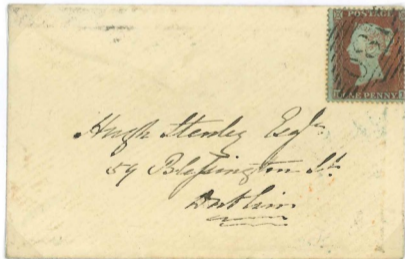 POSTAGE
ONE PENNY
Hugh Stanley Esqr
59 Blessington St.
Dublin